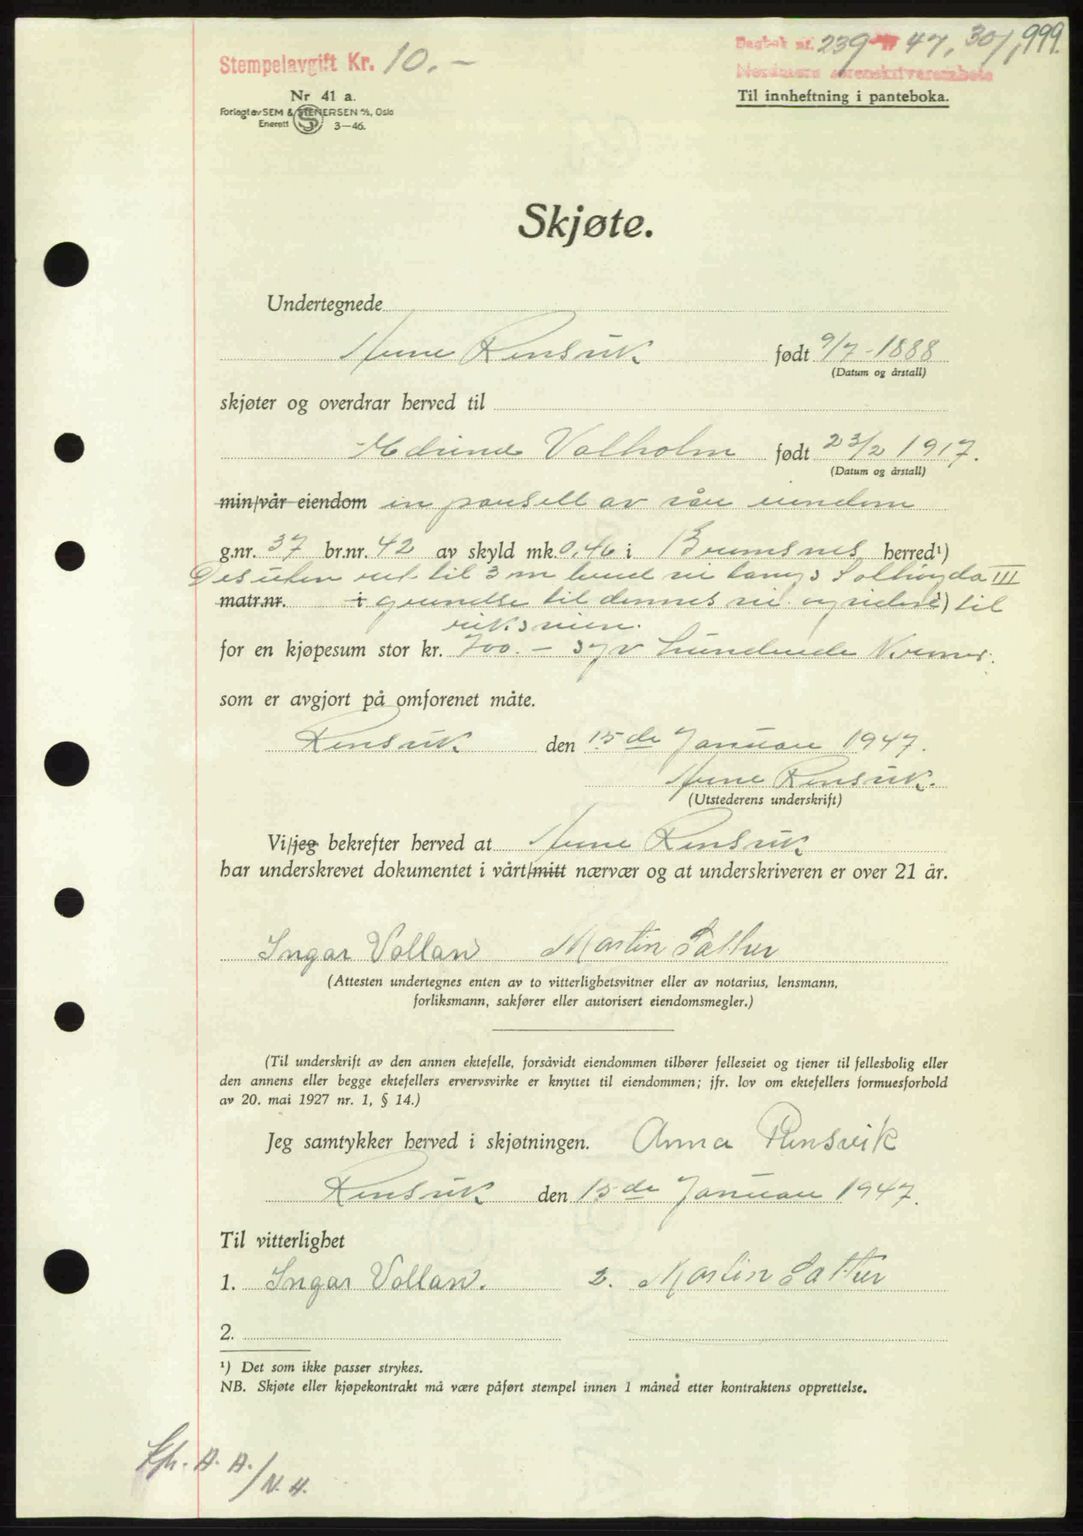 Stempelavgift Kr. 10.-
Dagbok nr. 239 - 47, 30/1, 999.
Nordmøre sorenskriverembete
Nr 41 a.
Til innheftning i panteboka.
Forlagt av SEM & STENERSEN A/S, Oslo
Enerett 3-46.
Skjøte.
Undertegnede
Arne Rensvik født 9/7-1888
(Datum og årstall)
skjøter og overdrar herved til
Edvind Valholm født 23/2 1917.
(Datum og årstall)
min/vår eiendom en parsell av vår eiendom
g.nr. 37 br.nr. 42 av skyld mk. 0,46 i Bremsnes herred¹)
Desuten rett til 3 m bred vei langs Solhøgda III
matr.nr. i grendse til dennes vei og videre ¹) til
riksveien.
for en kjøpesum stor kr. 700.- syv hundrede Kroner.
som er avgjort på omforenet måte.
Rensvik den 15de Januar 1947.
Arne Rensvik.
(Utstederens underskrift)
Vi/jeg bekrefter herved at Arne Rensvik
har underskrevet dokumentet i vårt/mitt nærvær og at underskriveren er over 21 år.
Ingar Vollan Martin Sather
(Attesten undertegnes enten av to vitterlighetsvitner eller av notarius, lensmann,
forliksmann, sakfører eller autorisert eiendomsmegler.)
(Til underskrift av den annen ektefelle, forsåvidt eiendommen tilhører felleseiet og tjener til fellesbolig eller
den annens eller begge ektefellers ervervsvirke er knyttet til eiendommen; jfr. lov om ektefellers formuesforhold
av 20. mai 1927 nr. 1, § 14.)
Jeg samtykker herved i skjøtningen. Anna Rensvik
Rensvik den 15de Januar 1947.
Til vitterlighet
1. Ingar Vollan. 2. Martin Sather
2.
¹) Det som ikke passer strykes.
NB. Skjøte eller kjøpekontrakt må være påført stempel innen 1 måned etter kontraktens opprettelse.
A. A./N. H.